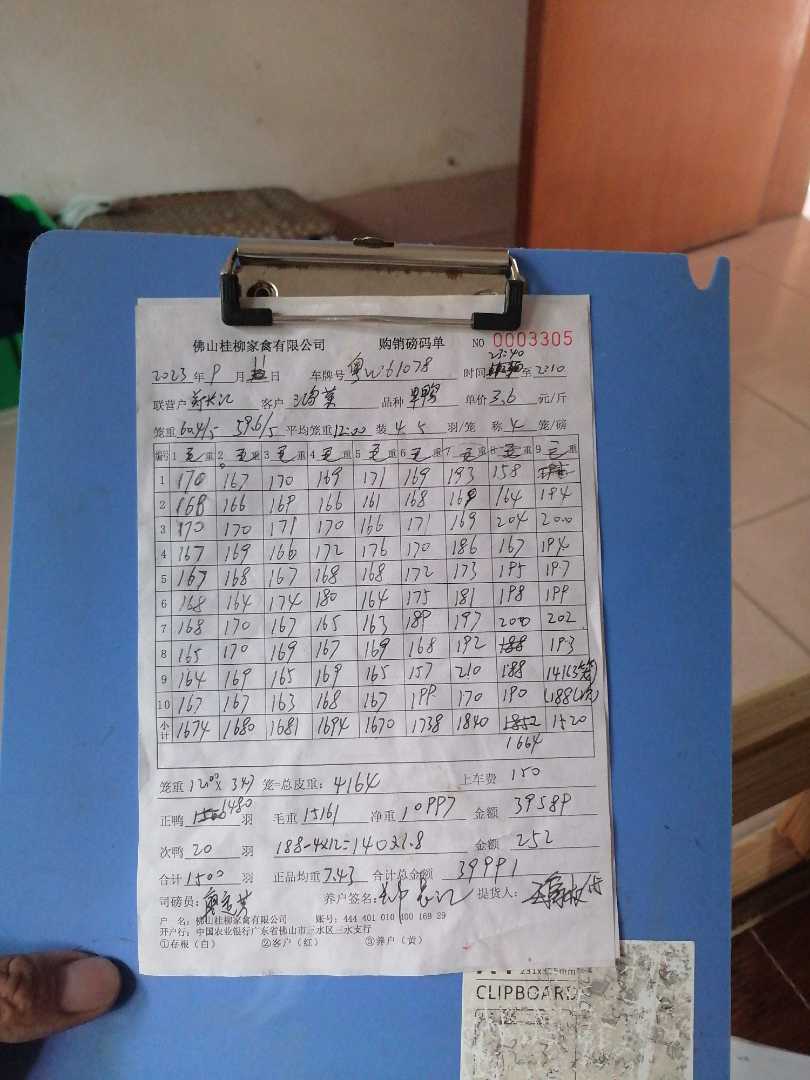 佛山桂柳家禽有限公司 购销磅码单 NO 0003305
2023年9月11日 车牌号 粤W61078 时间 23:40 至 2:10
联营户 客户 鸿业 品种 旱鸭 单价 3.6 元/斤
笼重 60.4/5 59.6/5 平均笼重 12:00 装 4.5 羽/笼 称 4 笼/磅
编号 1 毛重 2 毛重 3 毛重 4 毛重 5 毛重 6 毛重 7 毛重 8 毛重 9 毛重
1 170 167 170 169 171 169 193 158
2 168 166 169 166 161 168 169 164 184
3 170 170 171 170 166 171 169 204 200
4 167 169 166 172 176 170 186 167 194
5 167 168 167 168 168 172 173 195 197
6 168 164 174 180 164 175 181 198 199
7 168 170 167 165 163 189 197 200 202
8 165 170 169 167 169 168 192 188 193
9 164 169 165 169 165 157 210 188 14163
10 167 167 163 168 167 199 170 190 (188
小计 1674 1680 1681 1694 1670 1738 1840 1852 1520
1664
笼重 12.00 X 347 笼=总皮重: 4164 上车费 150
正鸭 1480 羽 毛重 15161 净重 10997 金额 39589
次鸭 20 羽 188-4x12=140x1.8 金额 252
合计 1500 羽 正品均重 7.43 合计总金额 39991
司磅员: 养户签名: 提货人:
户 名: 佛山桂柳家禽有限公司 账号: 444 401 010 400 169 29
开户行: 中国农业银行广东省佛山市三水区三水支行
①存根（白） ②客户（红） ③养户（黄）
231x315mm
CLIPBOARD